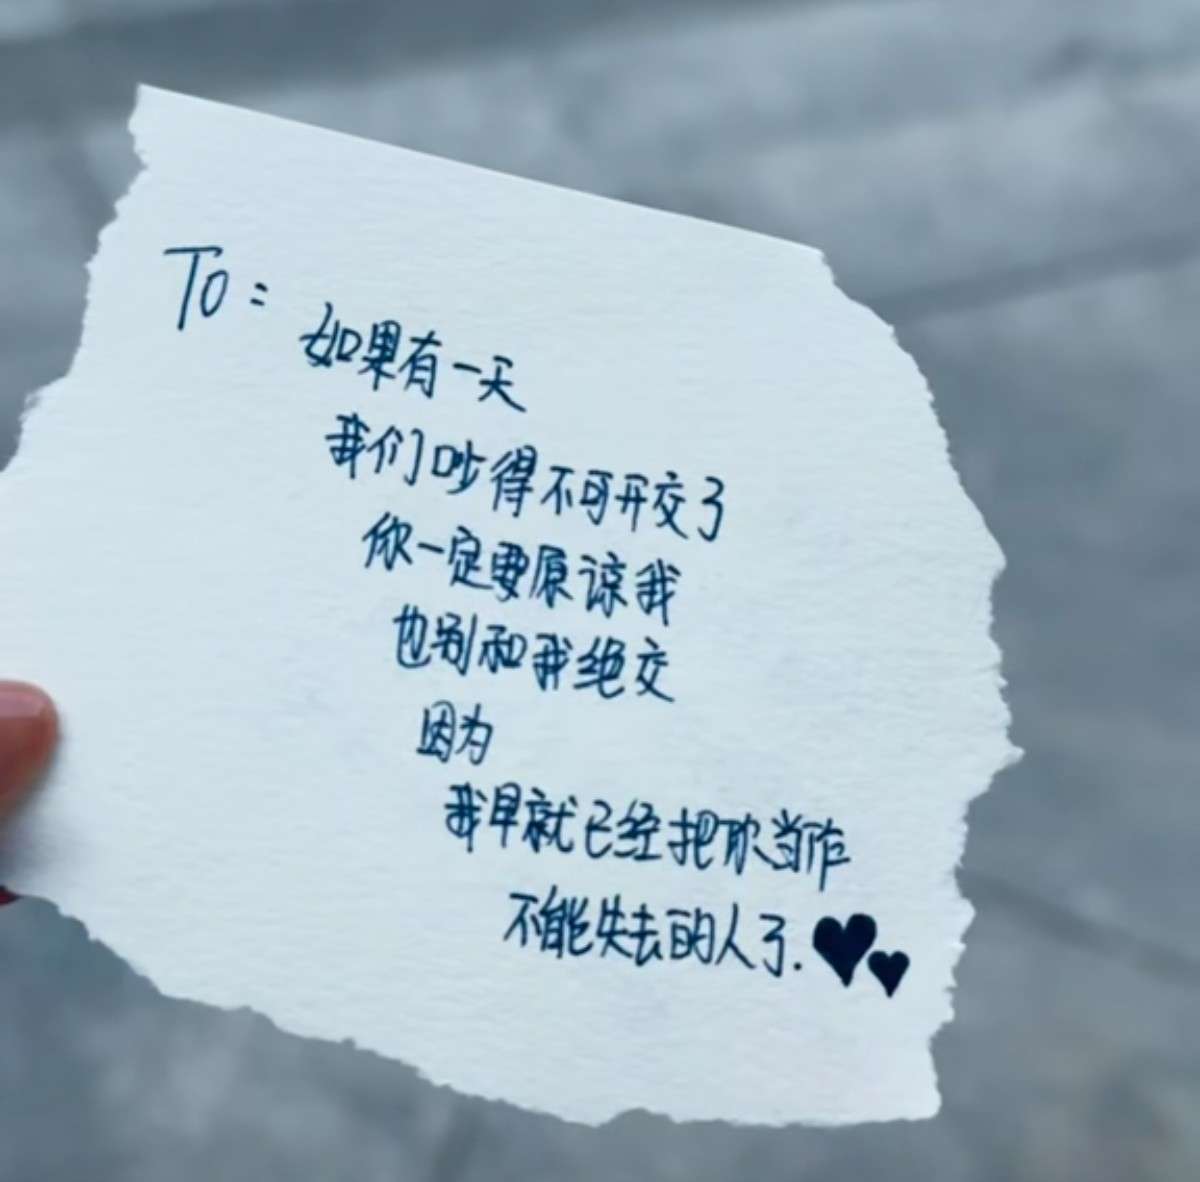 To:
如果有一天
我们吵得不可开交了
你一定要原谅我
也别和我绝交
因为
我早就已经把你当作
不能失去的人了.